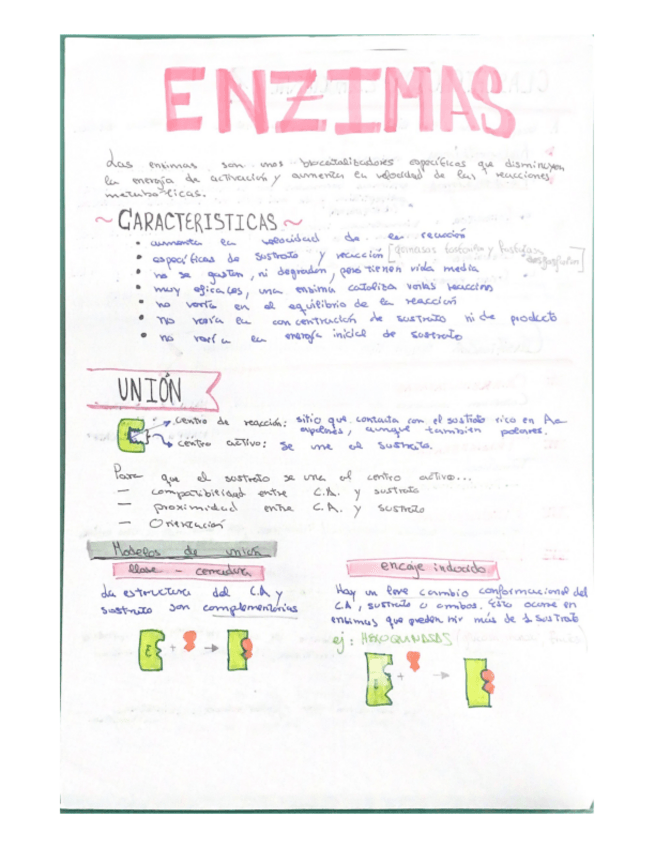 ENZIMAS
Las enzimas son unos biocatalizadores específicas que disminuyen
la energía de activación y aumenta la velocidad de las reacciones
metabólicas.
~ CARACTERISTICAS ~
• aumenta la velocidad de la reacción
• específicas de sustrato y reacción
• no se gastan, ni degradan, pero tienen vida media
• muy eficaces, una enzima cataliza varias reacción
• no varía en el equilibrio de la reacción
• no varía la concentración de sustrato ni de producto
• no varía la energía inicial de sustrato
UNIÓN
centro de reacción: sitio que contacta con el sustrato rico en Aa
apolares, aunque también polares.
centro activo: se une al sustrato.
Para que el sustrato se una al centro activo...
— compatibilidad entre C.A. y sustrato
— proximidad entre C.A. y sustrato
— Orientación
Modelos de unión
llave - cerradura
La estructura del C.A y
sustrato son complementarios
E + →
encaje inducido
Hay un leve cambio conformacional del
CA, sustrato o ambos. Esto ocurre en
enzimas que pueden unir más de 1 sustrato
ej: HEXOQUINASAS
+ →